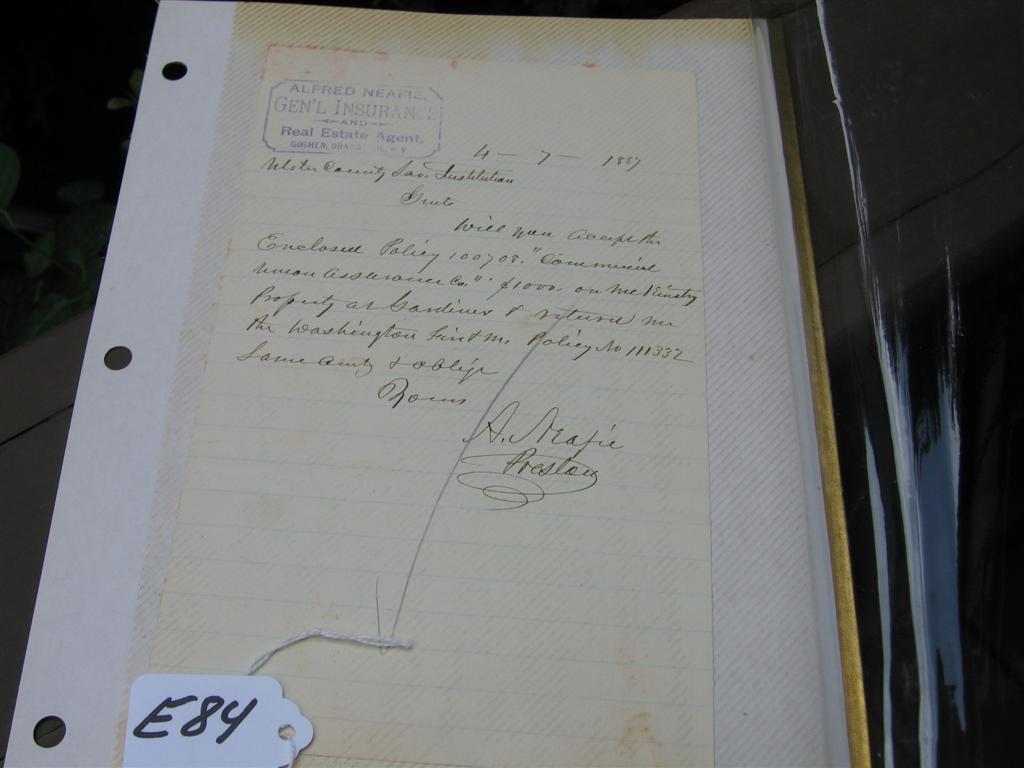 ALFRED NEAFIE,
GEN'L INSURANCE
AND
Real Estate Agent,
GOSHEN, ORANGE N.Y.
4 - 7 - 1887
Ulster County Sav. Institution
Gents
Will you accept the
Enclosed Policy 100708. "Commercial
Union Assurance Co." $1000. on McKinstry
Property at Gardiner & return me
the Washington Fire & M. Policy No 111332
Same amt & oblige
Yours
A. Neafie
Preston
E84